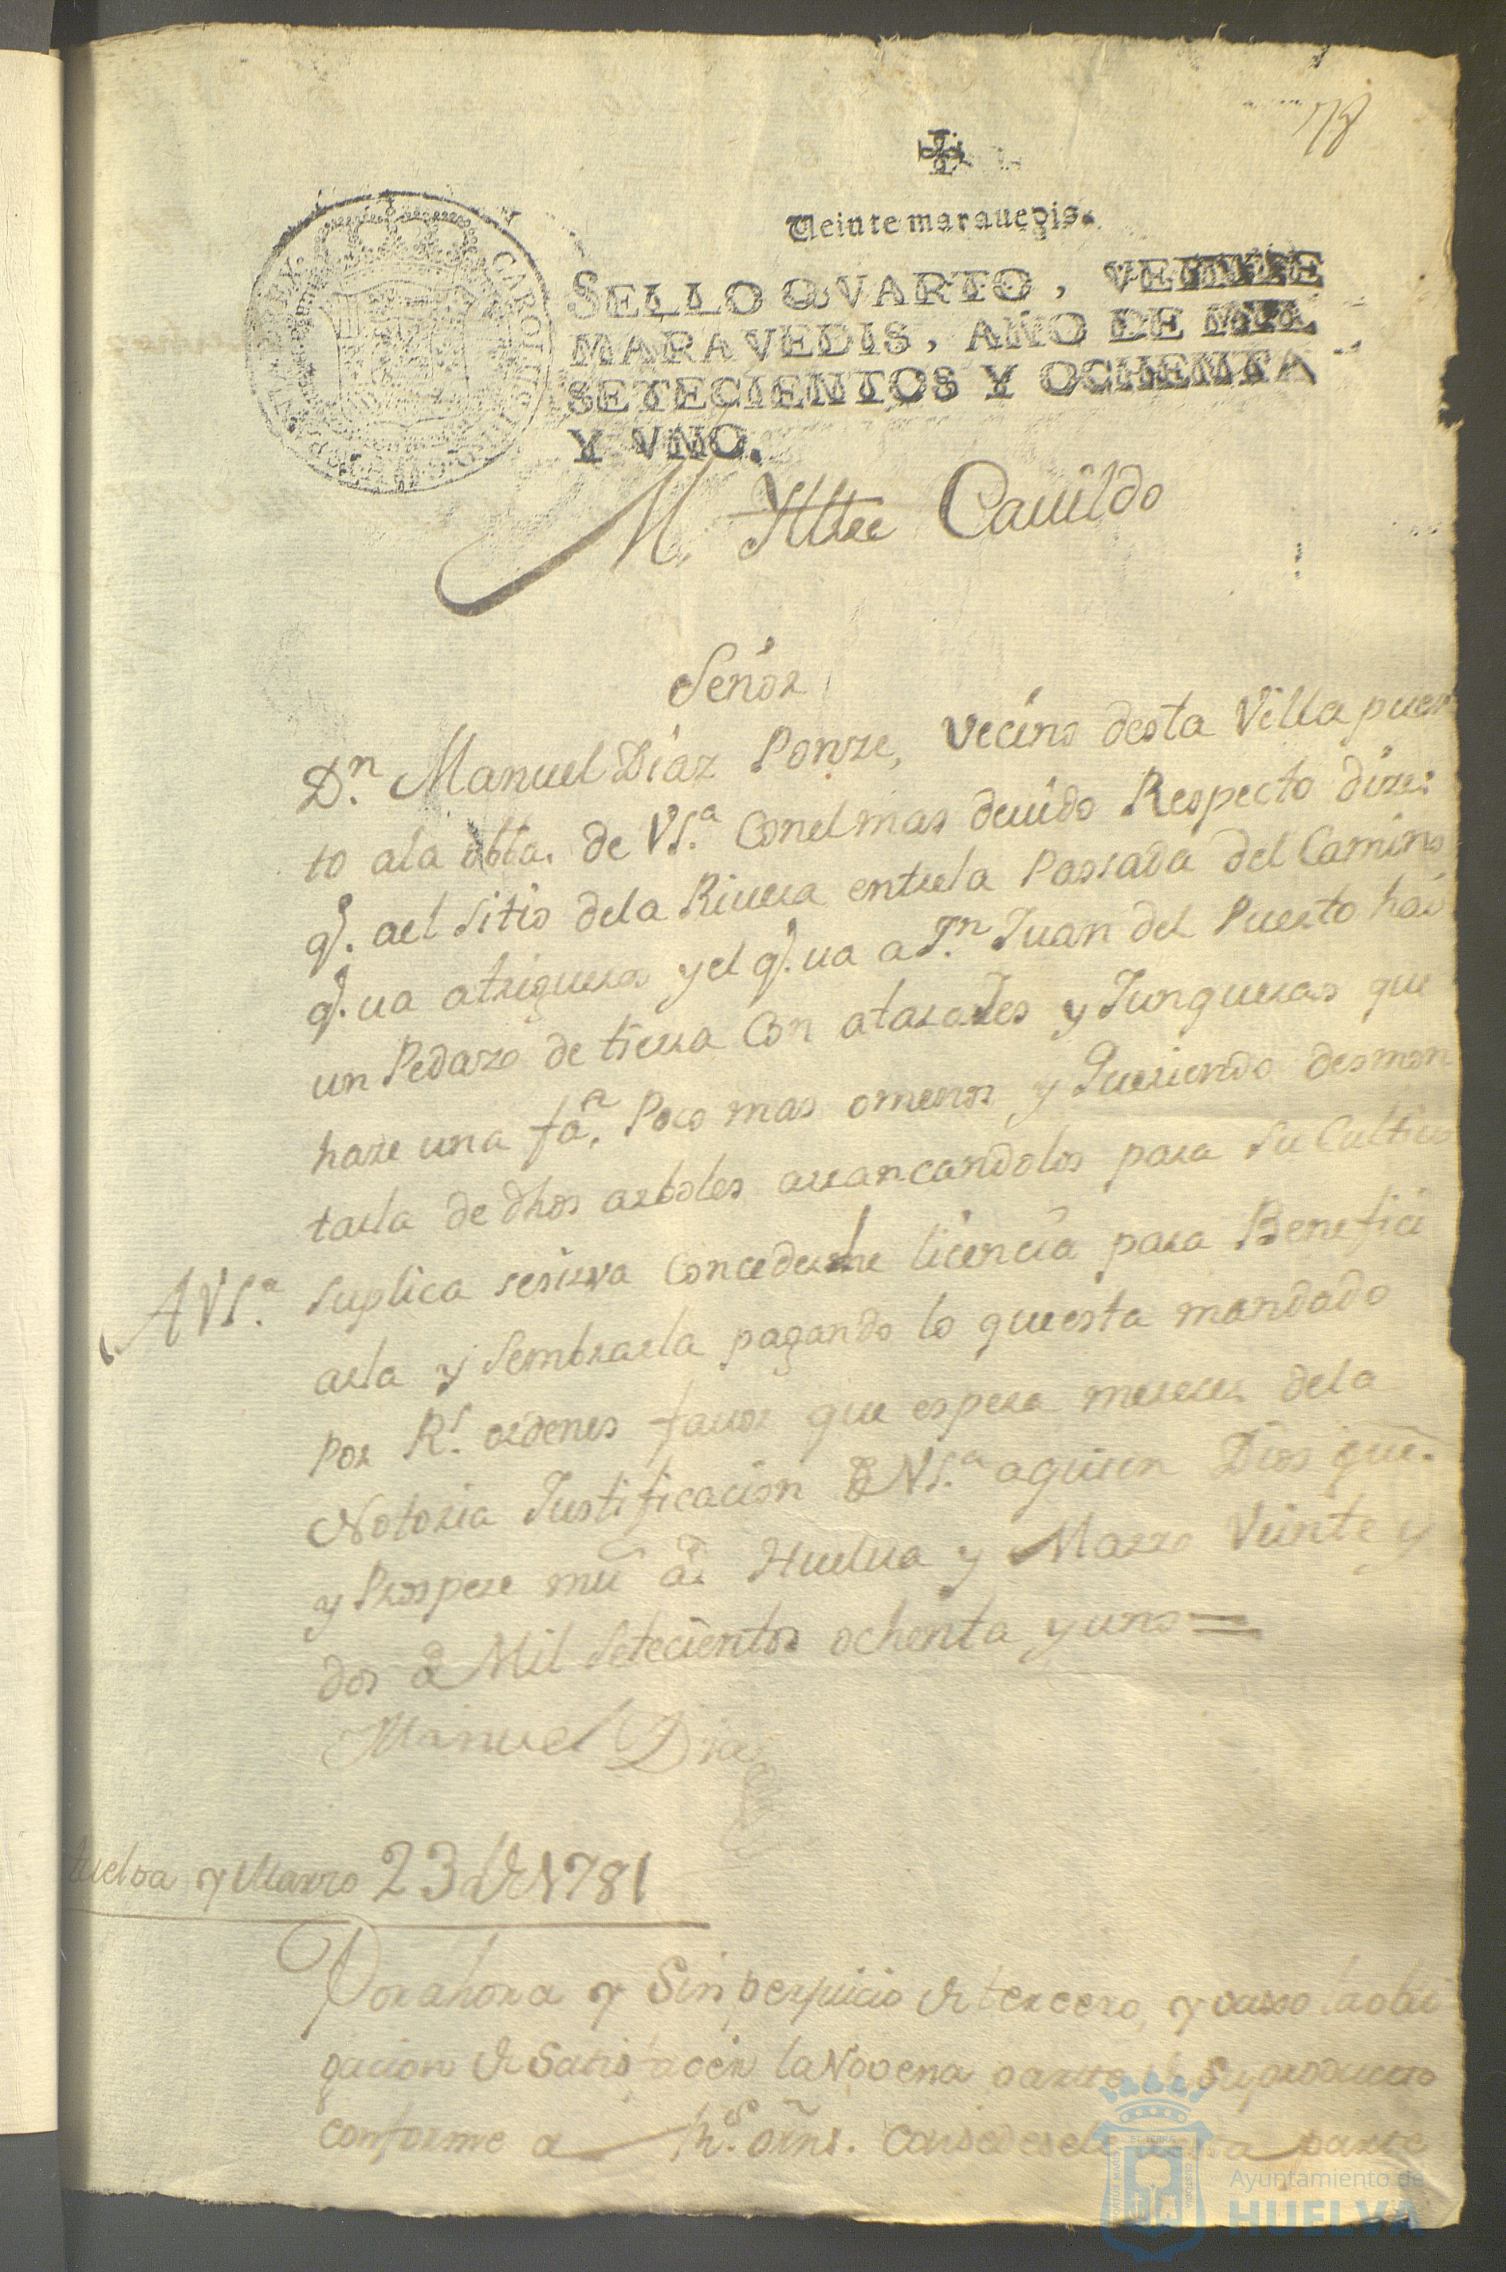 78
Veinte marauedis.
SELLO QVARTO, VEINTE
MARAVEDIS, AÑO DE MIL
SETECIENTOS Y OCHENTA
Y VNO.
M. Yltre Cauildo
Señor
Dn. Manuel Diaz Ponze, vecino desta Villa pues
to ala obba. de VSa. Conel mas deuido Respecto dize:
q. ael sitio dela Riuera entrela Passada del Camino
q. ua atrigueros y el q. ua a Sn. Juan del Puerto hai
un Pedazo de tierra Con atarajes y Junqueras que
haze una fa. Poco mas omenos y Queriendo desmon
tarla de dhos arboles arrancandolos para su Cultiuo
AVSa. suplica sesirva Concederle licencia para Benefici
arla y sembrarla pagando lo questa mandado
por Rs. ordenes fauor que espera merecer dela
Notoria Justificacion de VSa. aquien Dios gue.
y Prospere ms. as. Huelua y Marzo Veinte y
dos de Mil setecientos ochenta y uno=
Manuel Diaz
Huelva y Marzo 23 de 1781
Por ahora y Sin perjuicio de tercero, y vaxo la obli
gacion de Satisfacer la Novena parte de Su producto
conforme a Rs. orns. Concedesele esta parte
Ayuntamiento de
HUELVA